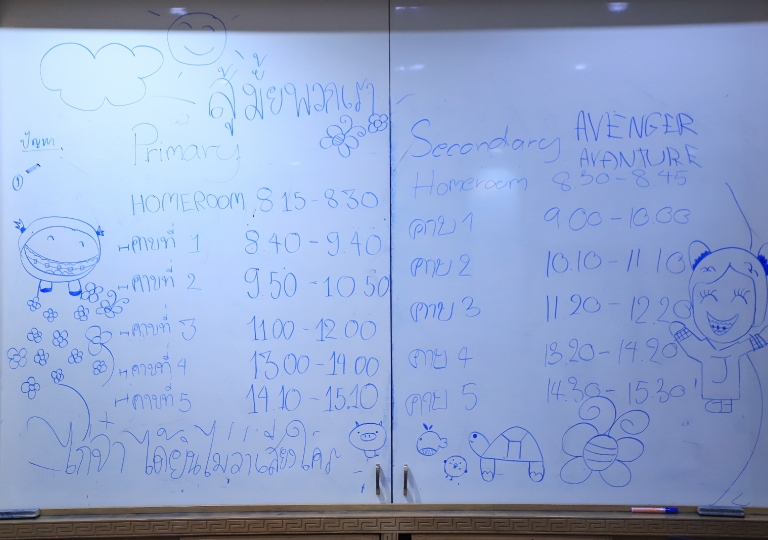 สู้มั้ยพวกเรา
ปัญหา
①
Primary
HOMEROOM 8.15-8.30
คาบที่ 1 8.40-9.40
คาบที่ 2 9.50-10.50
คาบที่ 3 11.00-12.00
คาบที่ 4 13.00-14.00
คาบที่ 5 14.10-15.10
ไก่จ๋า ได้ยินไหมว่าเสียงใคร
Secondary
AVENGER
AVANTURE
Homeroom 8.30-8.45
คาบ 1 9.00-10.00
คาบ 2 10.10-11.10
คาบ 3 11.20-12.20
คาบ 4 13.20-14.20
คาบ 5 14.30-15.30
J